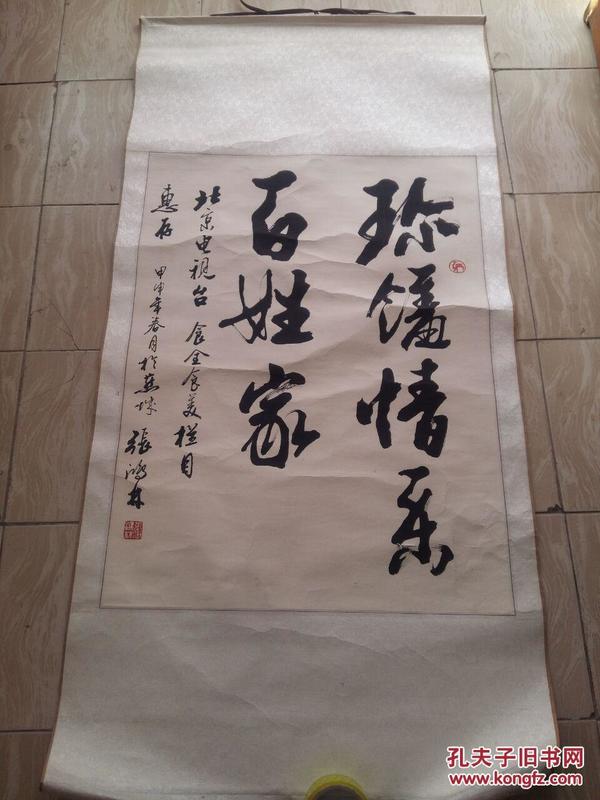 珍馐情系
百姓家
北京电视台 食全食美栏目
惠存 甲申年春月於蕪城 張鴻林
孔夫子旧书网
www.kongfz.com